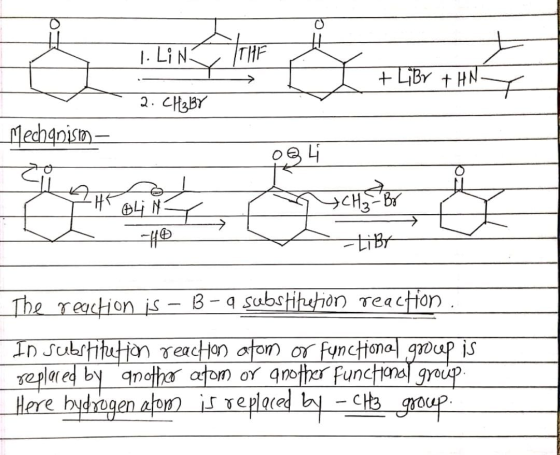 O O
1. LiN /THF
+ LiBr + HN
2. CH3Br
Mechanism –
O O⊖ Li O
H ⊖
⊕Li N CH3–Br
–H⊕ –LiBr
The reaction is – B – a substitution reaction.
In substitution reaction atom or functional group is
replaced by another atom or another functional group.
Here hydrogen atom is replaced by – CH3 group.